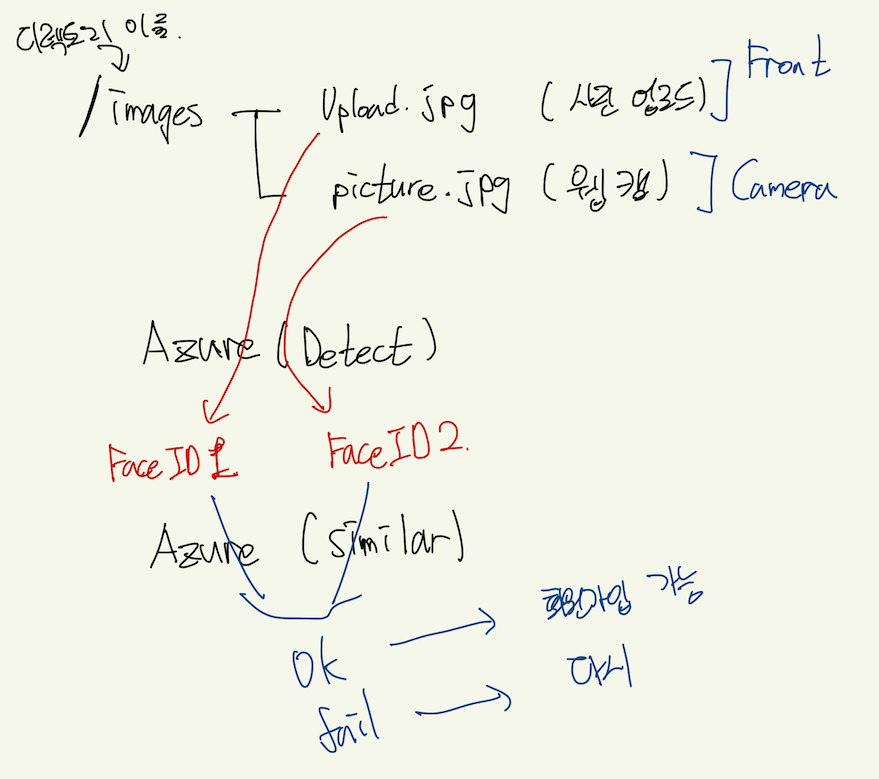 디렉토리 이름.
/images Upload.jpg (사진 업로드) Front
picture.jpg (웹캠) Camera
Azure (Detect)
Face ID 1 Face ID 2.
Azure (similar)
Ok 회원가입 가능
fail 다시